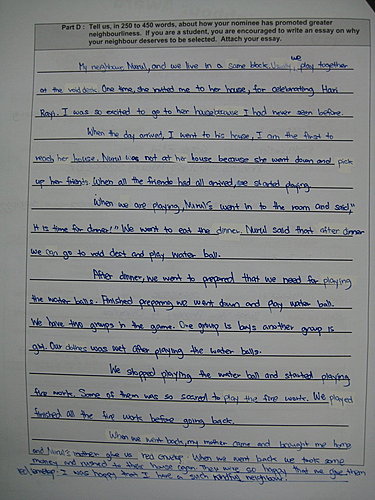 Part D : Tell us, in 250 to 450 words, about how your nominee has promoted greater
neighbourliness. If you are a student, you are encouraged to write an essay on why
your neighbour deserves to be selected. Attach your essay.
My neighbour, Nurul, and we live in a same block. Usually, we play together
at the void deck. One time, she invited me to her house, for celebrating Hari
Raya. I was so excited to go to her house because I had never seen before.
When the day arrived, I went to his house, I am the first to
reach her house. Nurul was not at her house because she went down and pick
up her friends. When all the friends had all arrived, we started playing.
When we are playing, Nurul's went in to the room and said,"
It is time for dinner!" We went to eat the dinner. Nurul said that after dinner
we can go to void deck and play water ball.
After dinner, we went to prepared that we need for playing
the water balls. Finished preparing we went down and play water ball.
We have two groups in the game. One group is boys another group is
girl. Our clothes was wet after playing the water balls.
We stopped playing the water ball and started playing
fire work. Some of them was so scared to play the fire work. We played
finished all the fire work before going back.
When we went back, my mother came and brought me home
and Nurul's mother give us red . When we went back we took some
money and rushed to their house again. They were so happy that we give them
red . I was happy that I have a such neighbour.